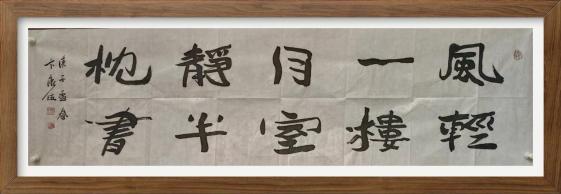 風輕
一樓
月室
靜半
枕書
庚子孟春